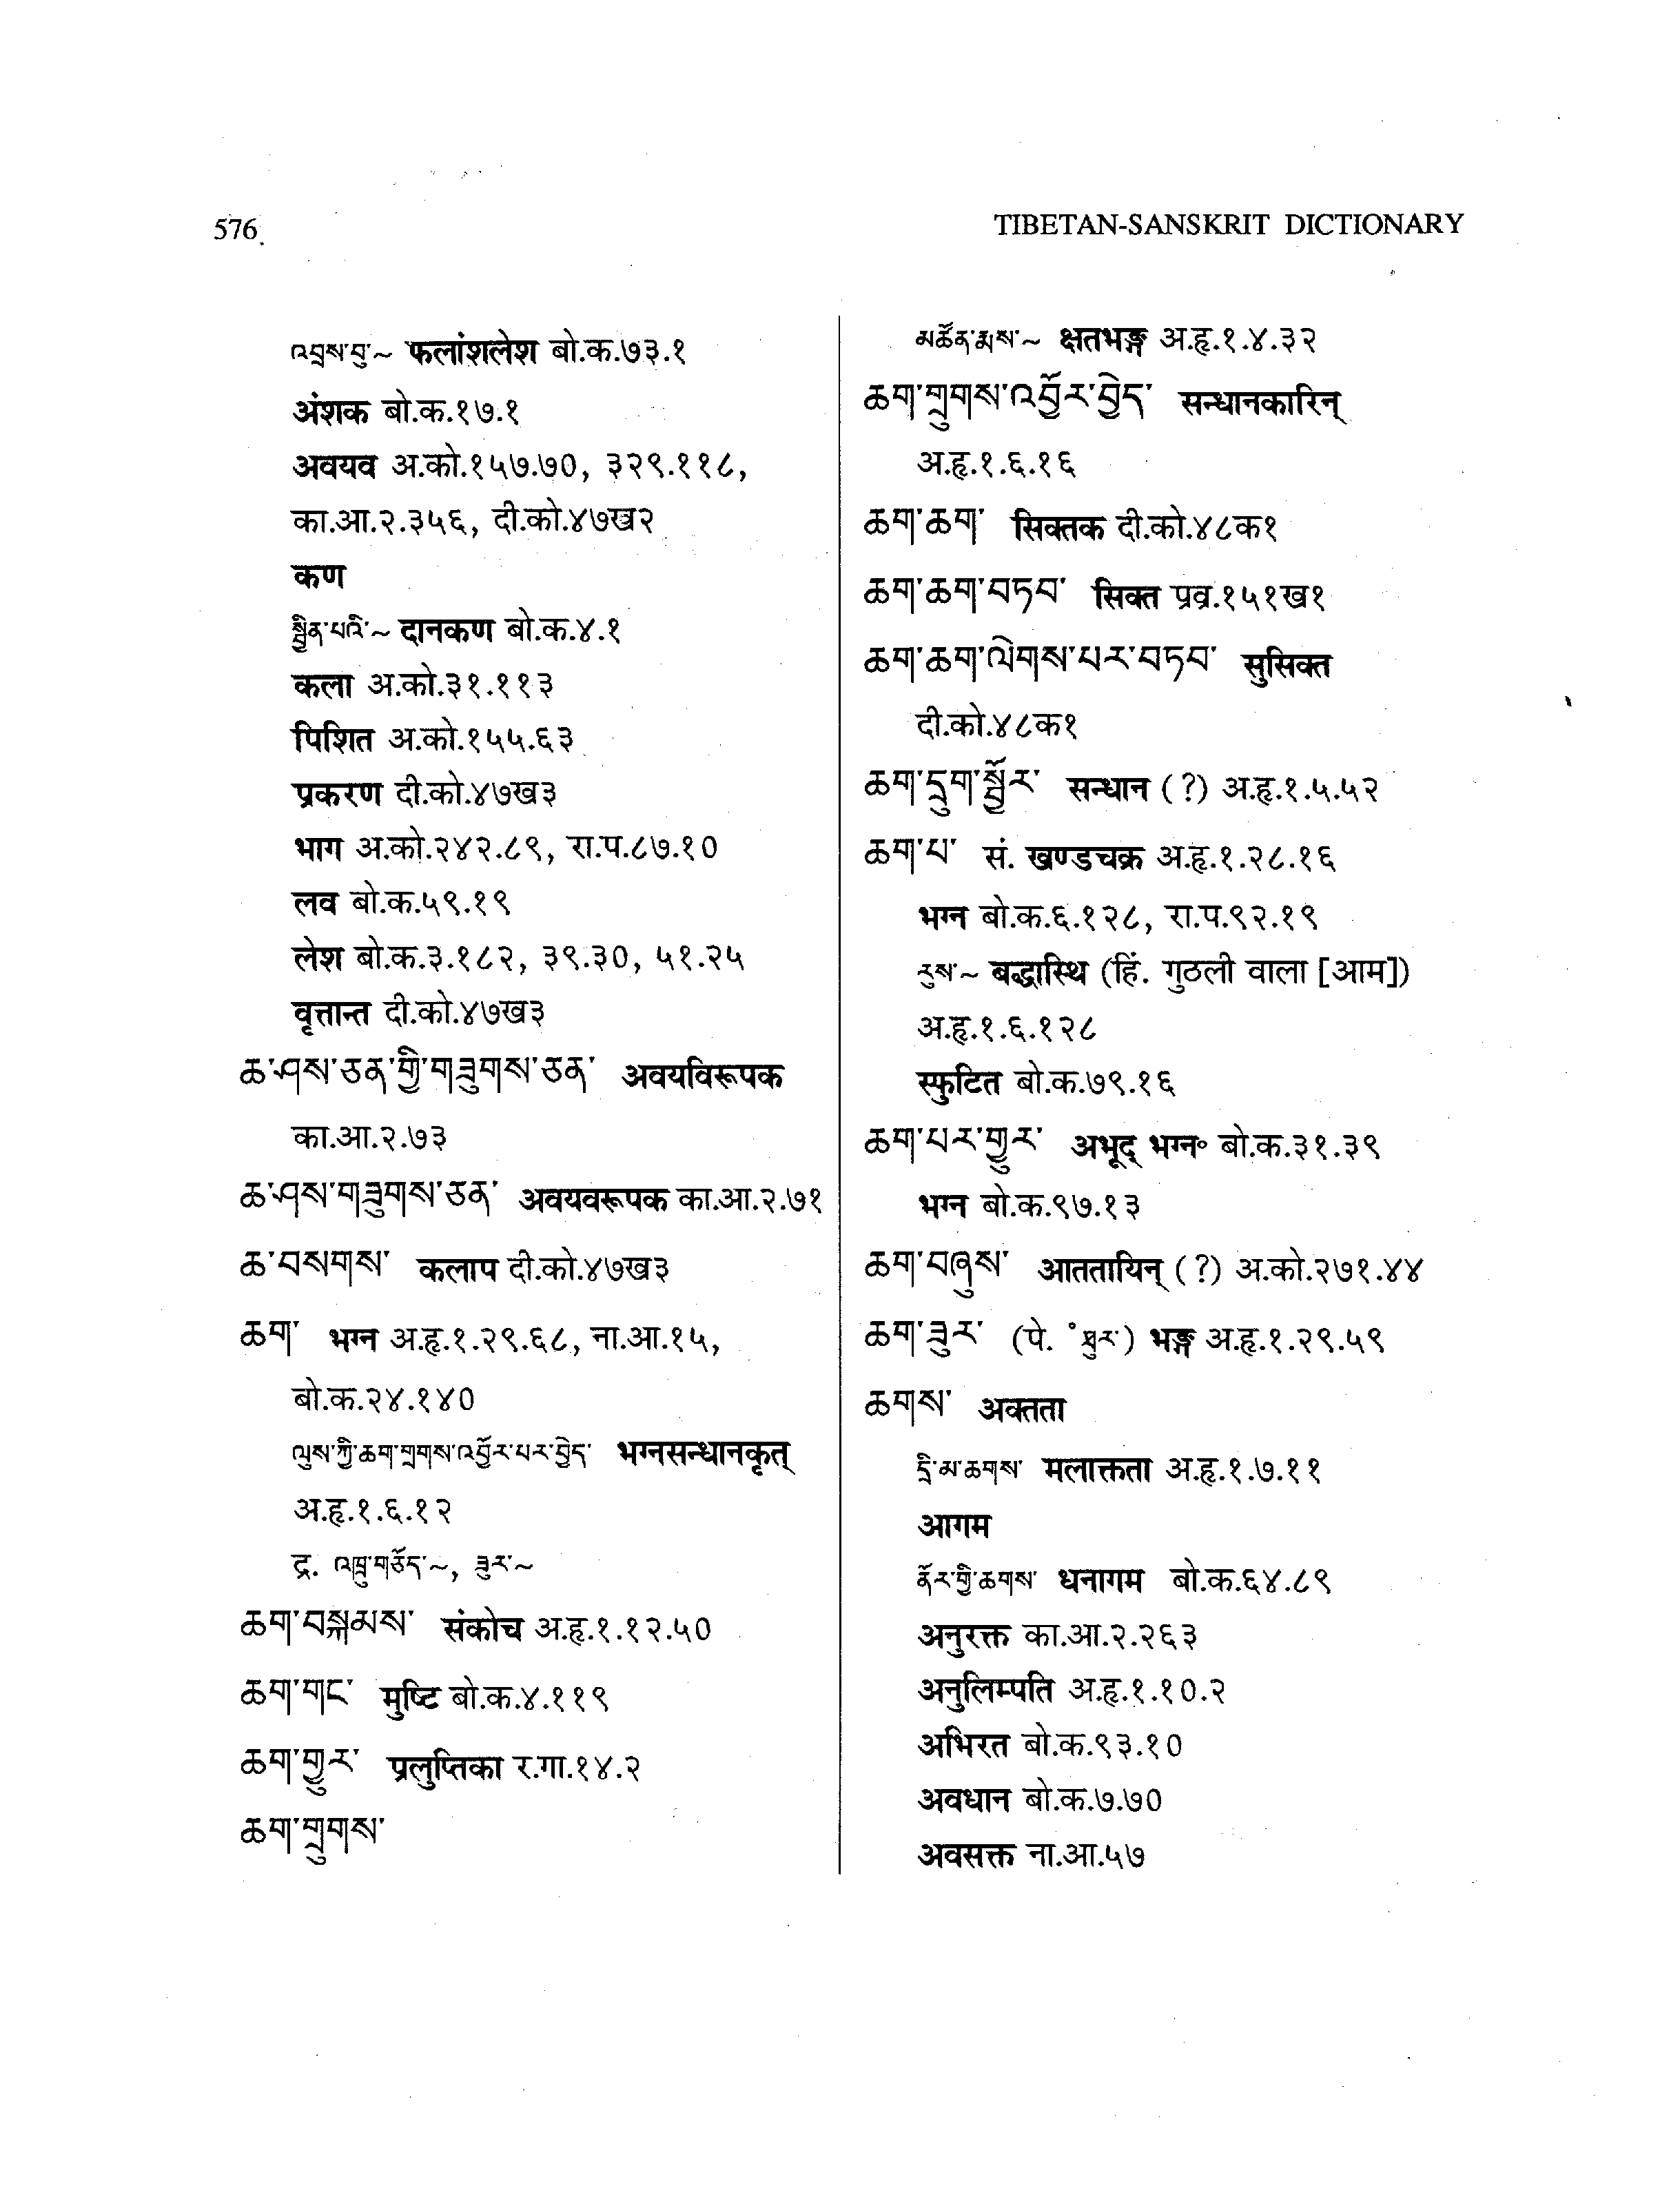 576
TIBETAN-SANSKRIT DICTIONARY
འབྲས་བུ་~ फलांशलेश बो.क.७३.१
अंशक बो.क.१७.१
अवयव अ.को.१५७.७०, ३२९.११८,
का.आ.२.३५६, दी.को.४७ख२
कण
སྦྱིན་པའི་~ दानकण बो.क.४.१
कला अ.को.३१.११३
पिशित अ.को.१५५.६३
प्रकरण दी.को.४७ख३
भाग अ.को.२४२.८९, रा.प.८७.१०
लव बो.क.५९.१९
लेश बो.क.३.१८२, ३९.३०, ५१.२५
वृत्तान्त दी.को.४७ख३
ཆ་ཤས་ཅན་གྱི་གཟུགས་ཅན་ अवयविरूपक
का.आ.२.७३
ཆ་ཤས་གཟུགས་ཅན་ अवयवरूपक का.आ.२.७१
ཆ་བསགས་ कलाप दी.को.४७ख३
ཆག་ भग्न अ.हृ.१.२९.६८, ना.आ.१५,
बो.क.२४.१४०
ལུས་ཀྱི་ཆག་གྲགས་འབྱོར་པར་བྱེད་ भग्नसन्धानकृत्
अ.हृ.१.६.१२
द्र. འཁྲུ་གཅོད་~, ཟུར་~
ཆག་བསྐམས་ संकोच अ.हृ.१.१२.५०
ཆག་གང་ मुष्टि बो.क.४.११९
ཆག་གྱུར་ प्रलुप्तिका र.गा.१४.२
ཆག་གྲུགས་
མཚོན་རྨས་~ क्षतभङ्ग अ.हृ.१.४.३२
ཆག་གྲུགས་འབྱོར་བྱེད་ सन्धानकारिन्
अ.हृ.१.६.१६
ཆག་ཆག་ सिक्तक दी.को.४८क१
ཆག་ཆག་བཏབ་ सिक्त प्रव्र.१५१ख१
ཆག་ཆག་ལེགས་པར་བཏབ་ सुसिक्त
दी.को.४८क१
ཆག་དྲུག་སྦྱོར་ सन्धान (?) अ.हृ.१.५.५२
ཆག་པ་ सं. खण्डचक्र अ.हृ.१.२८.१६
भग्न बो.क.६.१२८, रा.प.९२.१९
རུས་~ बद्धास्थि (हिं. गुठली वाला [आम])
अ.हृ.१.६.१२८
स्फुटित बो.क.७९.१६
ཆག་པར་གྱུར་ अभूद् भग्न॰ बो.क.३१.३९
भग्न बो.क.९७.१३
ཆག་བཞུས་ आततायिन् (?) अ.को.२७१.४४
ཆག་ཟུར་ (पे. ॰ཐུར་) भङ्ग अ.हृ.१.२९.५९
ཆགས་ अक्तता
དྲི་མ་ཆགས་ मलाक्तता अ.हृ.१.७.११
आगम
ནོར་གྱི་ཆགས་ धनागम बो.क.६४.८९
अनुरक्त का.आ.२.२६३
अनुलिम्पति अ.हृ.१.१०.२
अभिरत बो.क.९३.१०
अवधान बो.क.७.७०
अवसक्त ना.आ.५७